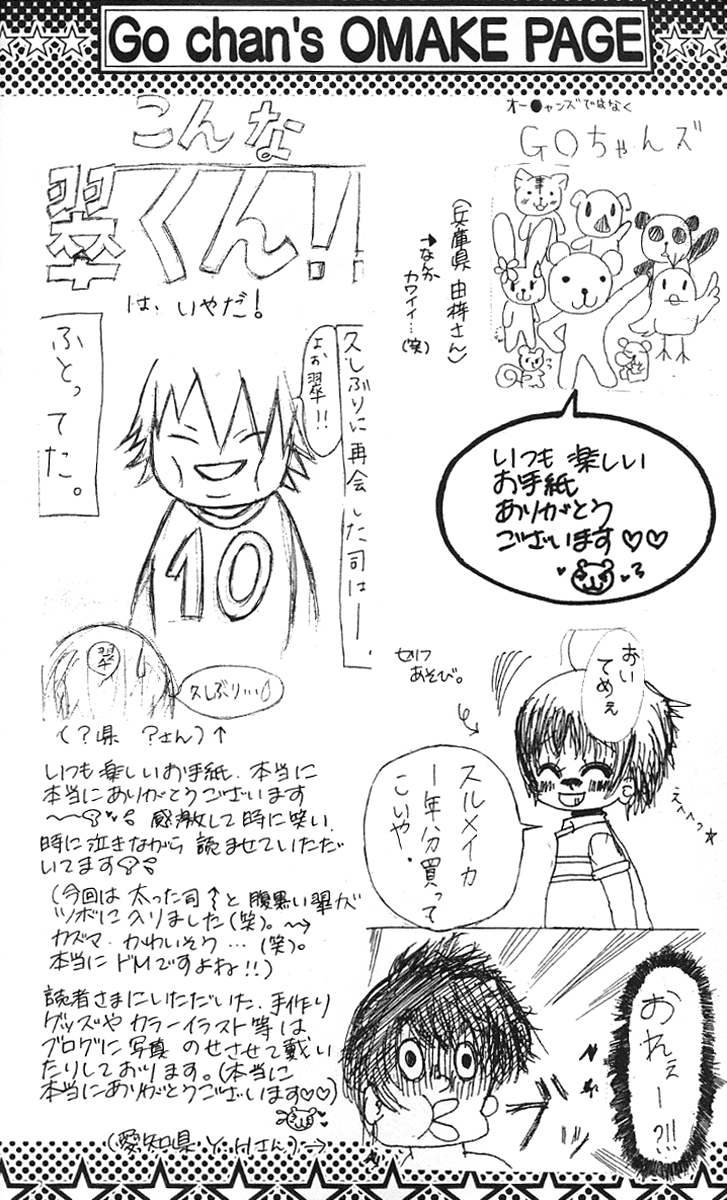 Go chan's OMAKE PAGE
オー●ャンズではなく
GOちゃんズ
(兵庫県 由梓さん)
→なんか
カワイイ…
(笑)
いつも楽しい
お手紙
ありがとう
ございます♡♡
こんな
翠くん!!
は、いやだ!
久しぶりに再会した司はー、
よお翠!!
ふとってた。
10
翠
久しぶり…
(?県 ?さん)↑
いつも楽しいお手紙、本当に
本当にありがとうございます
感激して時に笑い、
時に泣きながら読ませていただ
いてます
(今回は太った司↑と腹黒い翠が
ツボに入りました(笑)。
カズマ、かわいそう…(笑)。
本当にドMですよね!!)
読者さまにいただいた、手作り
グッズやカラーイラスト等は
ブログに写真のせさせて戴い
たりしております。(本当に
本当にありがとうございます♡♡)
(愛知県 Y・Hさん)→
セリフ
あそび。
おい
てめぇ
スルメイカ
1年分買って
こいや。
えへへっ☆
おれぇー?!!